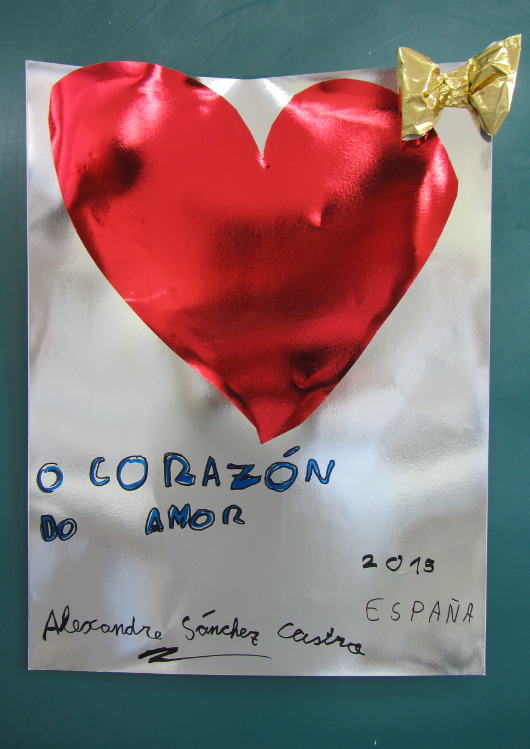 O CORAZÓN
DO AMOR
2013
ESPAÑA
Alexandre Sánchez Castro